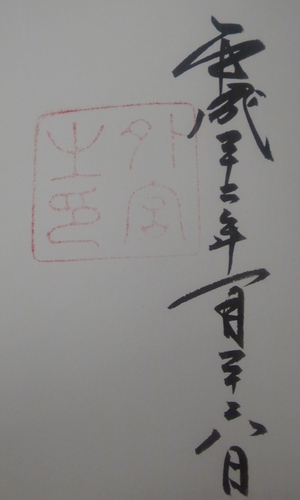 平成二十二年一月二十六日
外宮
之印